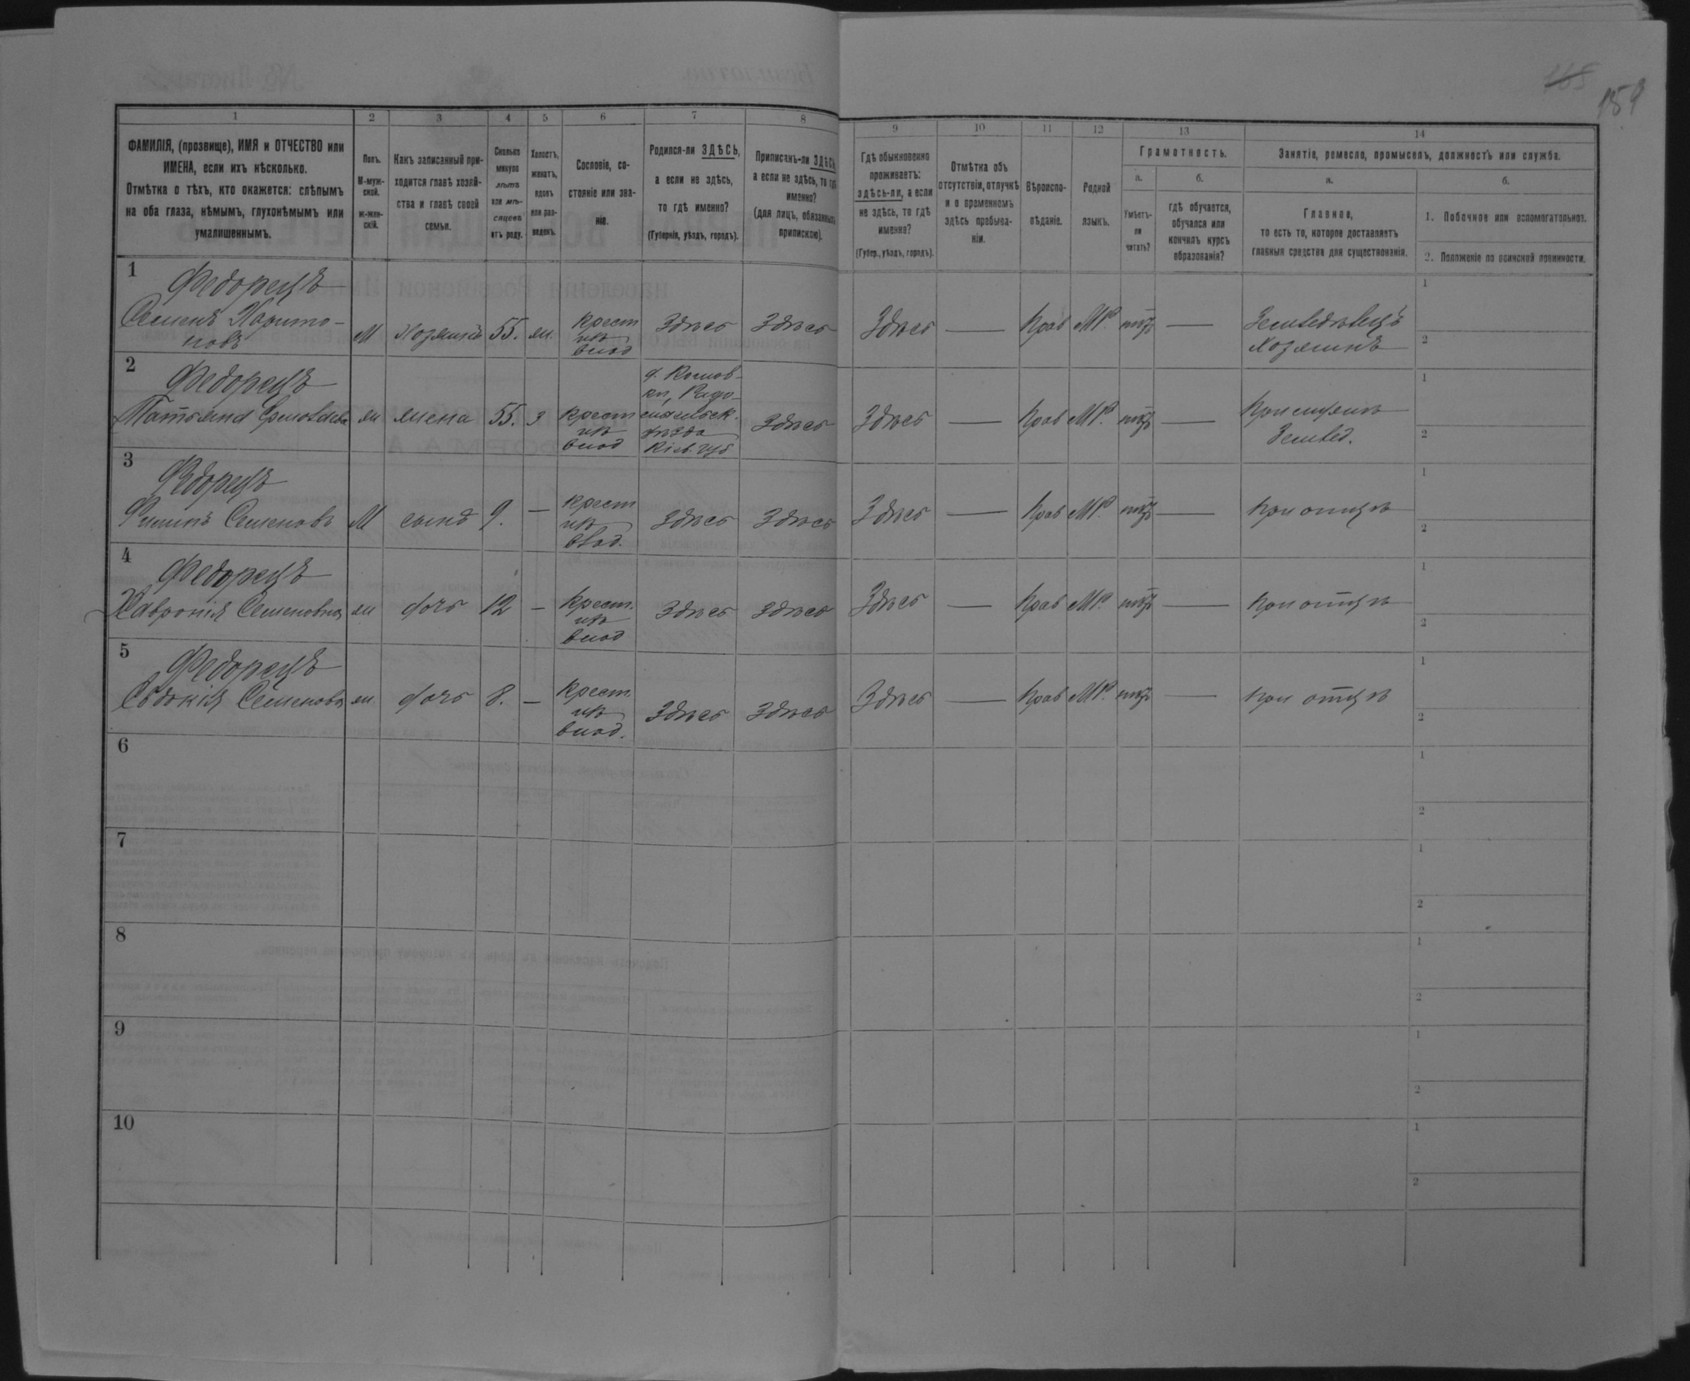 168
159
1
2
3
4
5
6
7
8
9
10
11
12
13
14
ФАМИЛІЯ, (прозвище), ИМЯ и ОТЧЕСТВО или
ИМЕНА, если ихъ нѣсколько.
Отмѣтка о тѣхъ, кто окажется: слѣпымъ
на оба глаза, нѣмымъ, глухонѣмымъ или
умалишеннымъ.
Полъ.
М-муж-
ской.
ж-жен-
скій.
Какъ записанный при-
ходится главѣ хозяй-
ства и главѣ своей
семьи.
Сколько
минуло
лѣтъ
или мѣ-
сяцевъ
отъ роду.
Холостъ,
женатъ,
вдовъ
или раз-
веденъ.
Сословіе, со-
стояніе или зва-
ніе.
Родился-ли ЗДѢСЬ,
а если не здѣсь,
то гдѣ именно?
(Губернія, уѣздъ, городъ).
Приписанъ-ли ЗДѢСЬ,
а если не здѣсь, то гдѣ
именно?
(для лицъ, обязанныхъ
припискою).
Гдѣ обыкновенно
проживаетъ:
здѣсь-ли, а если
не здѣсь, то гдѣ
именно?
(Губер., уѣздъ, городъ).
Отмѣтка объ
отсутствіи, отлучкѣ
и о временномъ
здѣсь пребыва-
ніи.
Вѣроиспо-
вѣданіе.
Родной
языкъ.
Грамотность.
а.
Умѣетъ-
ли
читать?
б.
гдѣ обучается,
обучался или
кончилъ курсъ
образованія?
Занятіе, ремесло, промыселъ, должность или служба.
а.
Главное,
то есть то, которое доставляетъ
главныя средства для существованія.
б.
1. Побочное или вспомогательное.
2. Положеніе по воинской повинности.
1
Федорецъ
Семенъ Харито-
новъ
М хозяинъ 55. ж.
крест
изъ
влад
Здѣсь Здѣсь Здѣсь — Прав МР. нѣтъ —
Земледѣлецъ
хозяинъ
1
2
2
Федорецъ
ж жена 55. з
крест
изъ
влад
Радо-
мысльск.
уѣзда
Кіев. губ
Здѣсь Здѣсь — Прав МР. нѣтъ —
При мужѣ
Землед.
1
2
3
Федорецъ
Филипъ Семеновъ М сынъ 9. —
крест
изъ
влад.
Здѣсь Здѣсь Здѣсь — Прав МР. нѣтъ — при отцѣ
1
2
4
Федорецъ
Хавронія Семеновна ж дочь 12 —
крест.
изъ
влад
Здѣсь Здѣсь Здѣсь — Прав МР. нѣтъ — при отцѣ
1
2
5
Федорецъ
Евдокія Семенова ж дочь 8. —
крест
изъ
влад.
Здѣсь Здѣсь Здѣсь — Прав МР. нѣтъ — при отцѣ
1
2
6
1
2
7
1
2
8
1
2
9
1
2
10
1
2